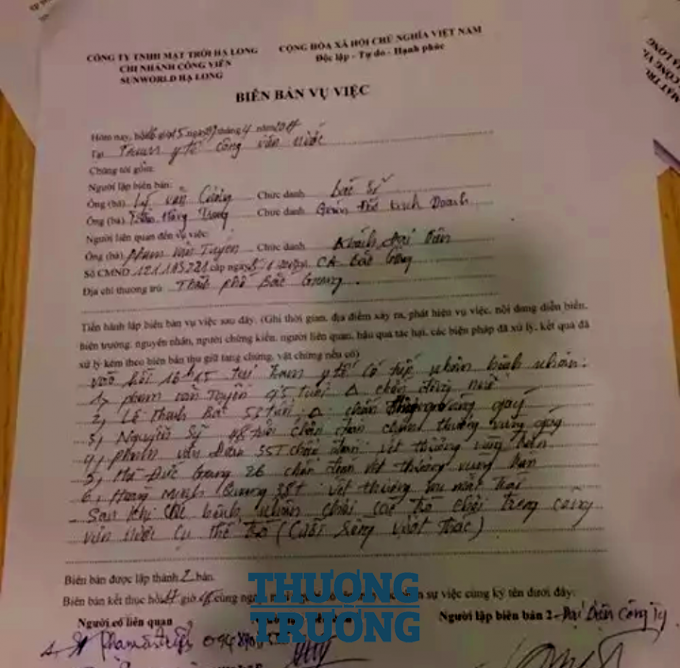 CÔNG TY TNHH MẶT TRỜI HẠ LONG
CHI NHÁNH CÔNG VIÊN
SUNWORLD HẠ LONG
CỘNG HÒA XÃ HỘI CHỦ NGHĨA VIỆT NAM
Độc lập - Tự do - Hạnh phúc
BIÊN BẢN VỤ VIỆC
Hôm nay, hồi 16 giờ 15 ngày tháng 4 năm
Tại Trạm y tế công viên nước
Chúng tôi gồm:
Người lập biên bản:
Ông (bà) Lý Văn Cường Chức danh Bác sĩ
Ông (bà) Trần Hùng Chức danh Quản lý Kinh Doanh
Người liên quan đến vụ việc:
Ông (bà) Phạm Văn Tuyên Chức danh Khách đại diện
Số CMND: 121185221 cấp ngày CA Bắc Giang
Địa chỉ thường trú: Thành phố Bắc Giang
Tiến hành lập biên bản vụ việc sau đây. (Ghi thời gian, địa điểm xảy ra, phát hiện vụ việc, nội dung diễn biến,
hiện trường, nguyên nhân, người chứng kiến, người liên quan, hậu quả tác hại, các biện pháp đã xử lý, kết quả đã
xử lý kèm theo biên bản thu giữ tang chứng, vật chứng nếu có)
Vào hồi 16h15 tại trạm y tế có tiếp nhận bệnh nhân:
1, Phạm Văn Tuyên 45 tuổi chấn thương
2, Lê Thanh Bắc 56 tuổi chấn thương vùng gáy
3, Nguyễn Sỹ 48 tuổi chẩn đoán chấn thương vùng gáy
4, Phạm Văn Đoàn 55T chẩn đoán: vết thương vùng trán
5, Mã Đức Giang 26 chẩn đoán vết thương vùng trán
6, Hoàng Minh Quang 38T: vết thương mắt trái
Sau khi các bệnh nhân chơi các trò chơi trong công
viên nước cụ thể trò (Cưỡi sóng vượt thác)
Biên bản được lập thành 2 bản.
Biên bản kết thúc hồi giờ cùng ngày sự việc cùng ký tên dưới đây:
Người có liên quan
Người lập biên bản 2 - Đại Diện Công ty
THƯƠNG
TRƯỜNG